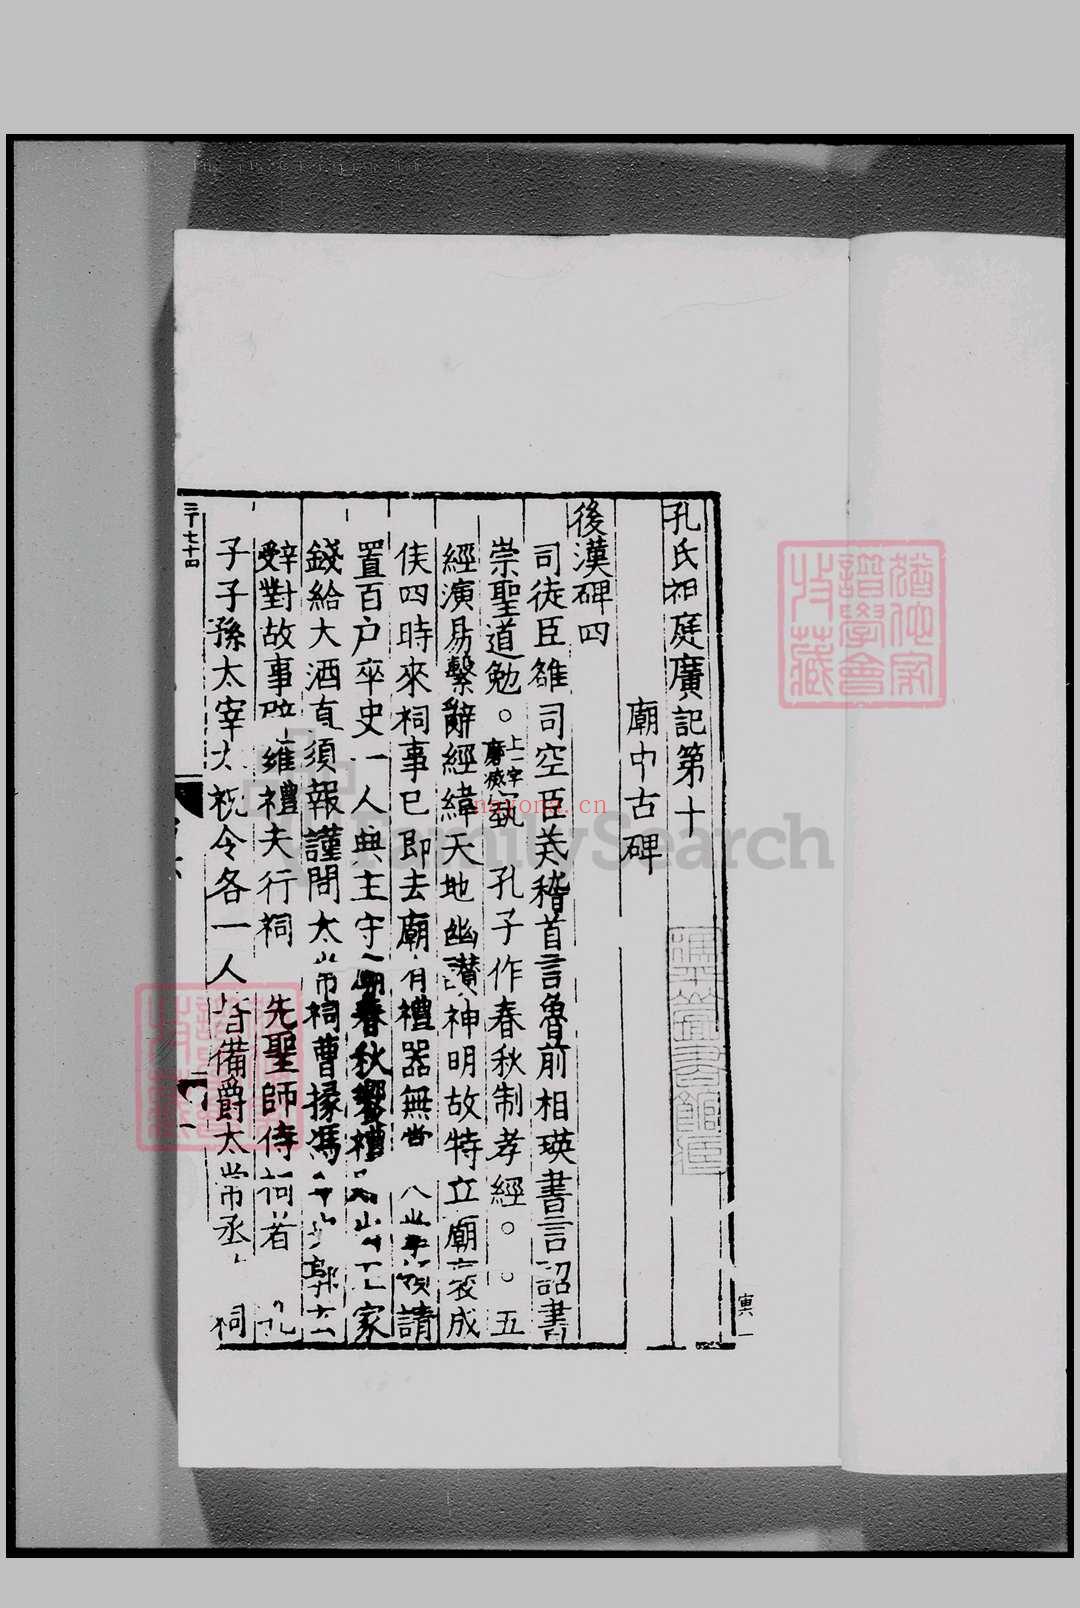 孔氏祖庭廣記第十
廟中古碑
後漢碑四
司徒臣雄司空臣羙稽首言魯前相瑛書言詔書
崇聖道勉。上一字磨滅蓺孔子作春秋制孝經。。五
經演易繫辭經緯天地幽讃神明故特立廟襃成
侯四時來祠事已即去廟有禮器無常人掌領請
置百户卒史一人典主守廟春秋饗禮出王家
錢給大酒直須報謹問太常祠曹掾馮牟史郭玄
辤對故事辟雍禮夫行祠先聖師侍祠者孔
子子孫太宰太祝令各一人皆備爵太常丞祠
三百七十四
寅一
FamilySearch
nayona.cn